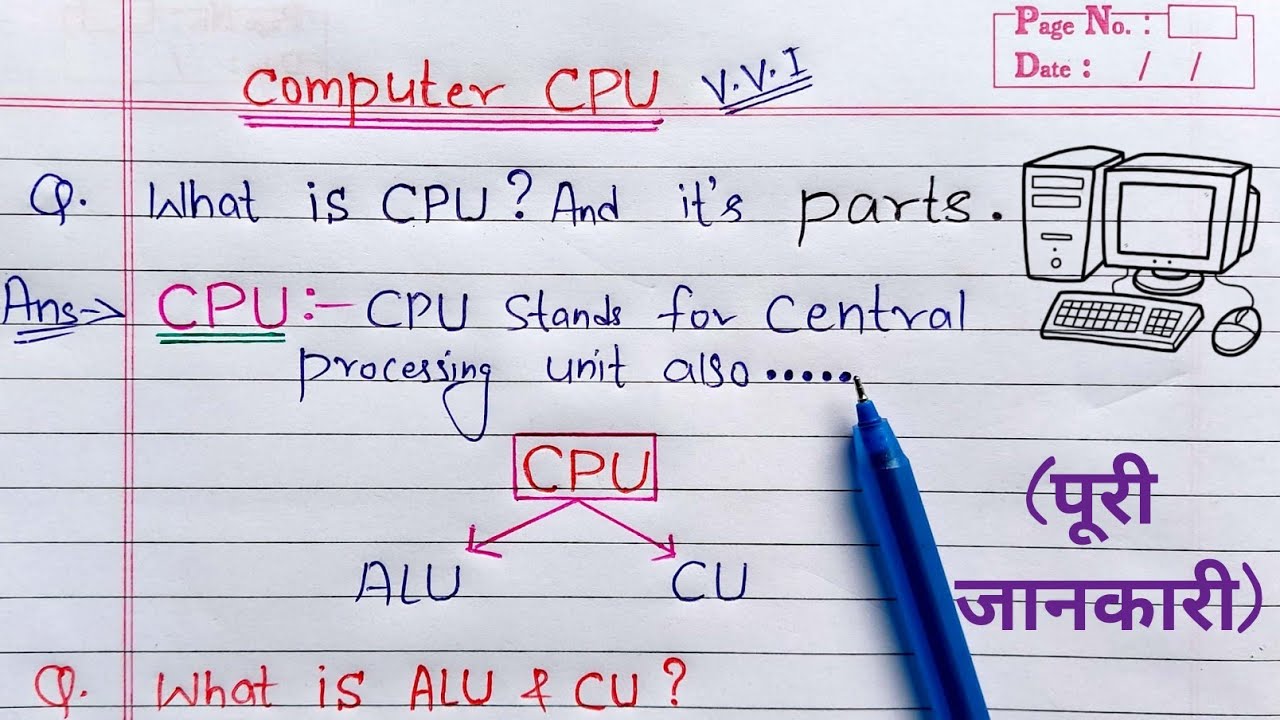 Page No. :
Date : / /
Computer CPU V.V.I
Q. What is CPU? And it's parts.
Ans→ CPU:- CPU Stands for Central
processing unit also......
CPU
ALU CU
(पूरी
जानकारी)
Q. What is ALU & CU?